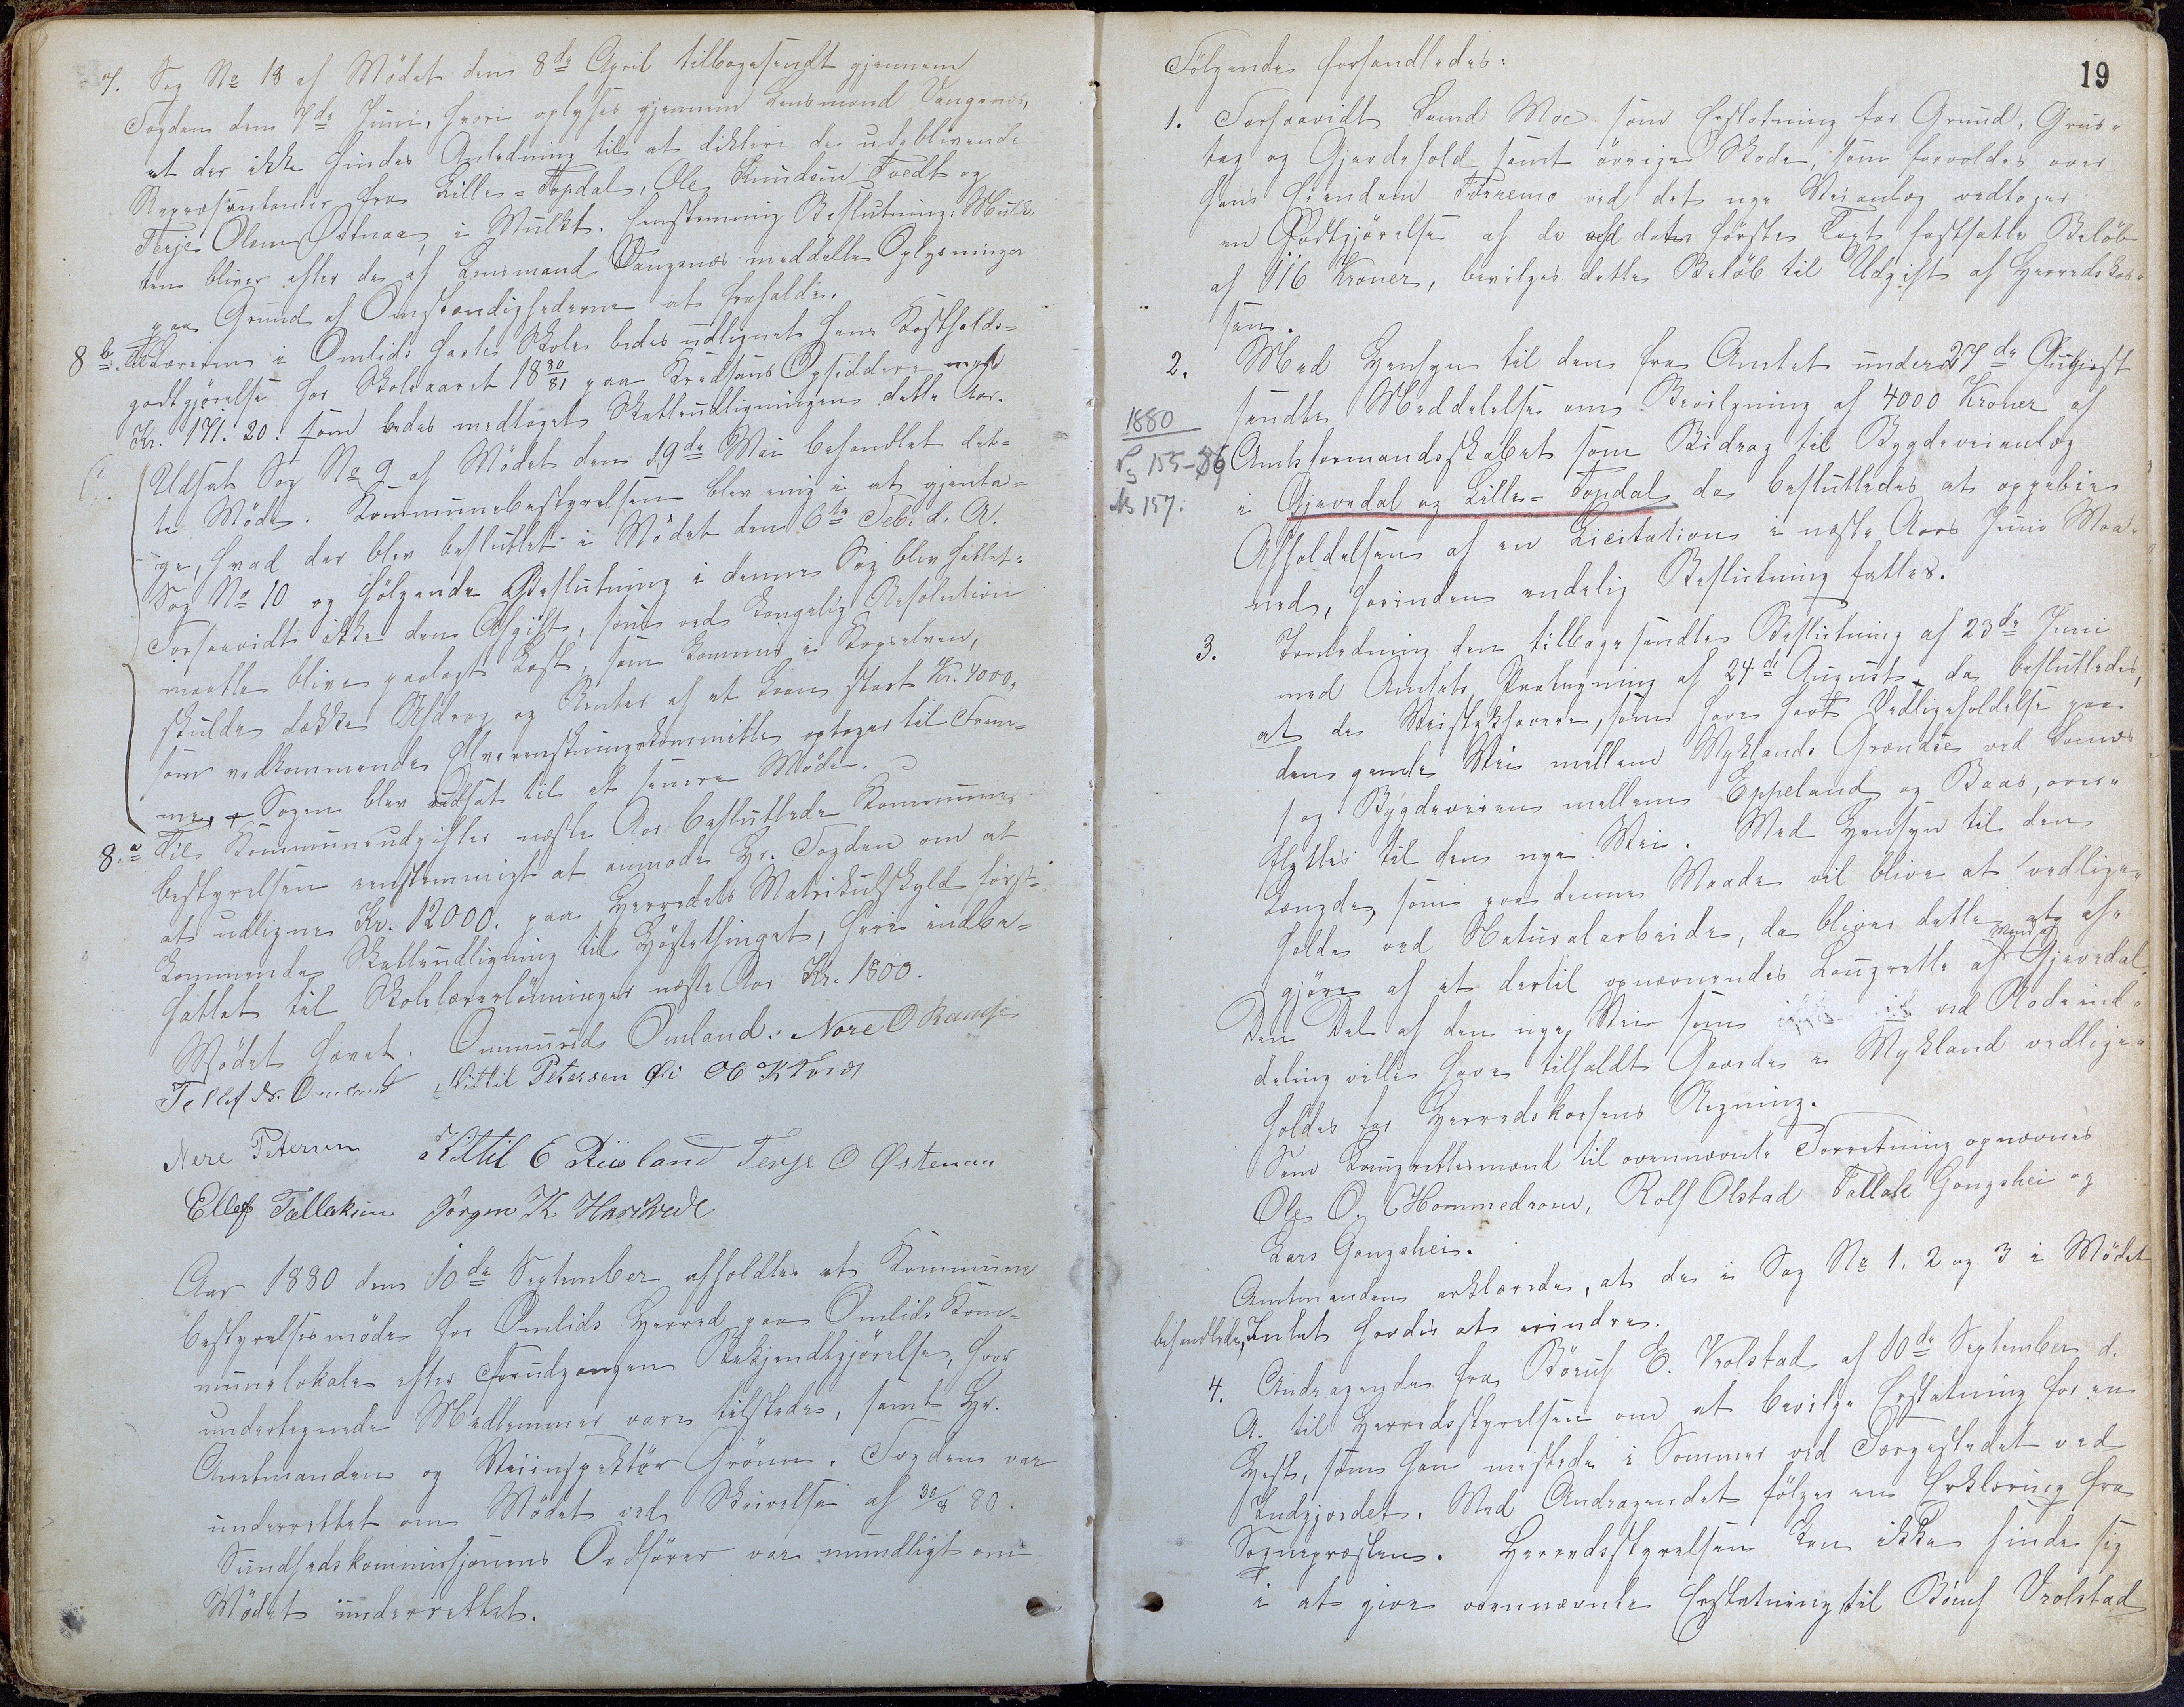 7. Sag No 18 af Mødet den 8de April tilbagesendt gjennem
Fogden den 7de Juni, hvori oplyses gjennem Lensmand Vangenes,
at der ikke findes Anledning til at diktere de udeblivende
Repræsentanter fra Lille-Topdal, Ole Knudsen Tvedt og
Terje Olsen Østenaa, i Mulkt. Eenstemmig Beslutning: Mulk-
ten bliver efter de af Lensmand Vangenes meddelte Oplysninger
paa Grund af Omstændighederne at frafalde.
8 b. Læreren i Omlids faste Skole bedes udlignet hans Kostholds-
godtgjørelse for Skoleaaret 18 80/81 paa Kredsens Opsiddere med
Kr. 171.20. som bedes medtaget Skatteudligningen dette Aar.
Udsat Sag No 9 af Mødet den 19de Mai behandlet det-
te Møde. Kommunebestyrelsen blev enig i at gjenta-
ge, hvad der blev besluttet i Mødet den 6te Feb. d. A.
Sag No 10 og følgende Beslutning i denne Sag blev fattet:
Forsaavidt ikke den Afgift, som ved Kongelig Resolution
maatte blive paalagt Last, som kommer i
skulde dække Afdrag og Renter af et Laan stort Kr. 4000,
som vedkommende Elverenskningskommitte optager til Frem-
me, + Sagen blev udsat til et senere Møde.
8. a Til Kommuneudgifter næste Aar besluttede Kommune-
bestyrelsen eenstemmigt at anmode Hr. Fogden om at
at udligne Kr. 12000. paa Herredets Matrikulskyld først-
kommende Skatteudligning til Høstethinget, heri indbe-
fattet til Skolelærerlønninger næste Aar Kr. 1800.
Mødet hævet. Ommund Omland. Nere O Ramse
Tellef Omland Kittil Petersen Øi
Nere Petersen Kittil E Risland Terje O Østenaa
Ellef Tallaksen Jørgen K. Harkvedt
Aar 1880 den 10de September afholdtes et Kommune
bestyrelsesmøde for Omlids Herred paa Omlids Kom-
munelokale efter Forudgangen Bekjendtgjørelse, hvor
undertegnede Medlemmer vare tilstede, samt Hr.
Amtmanden og Veiinspektør Grønn. Fogden var
underrettet om Mødet ved Skrivelse af 30/8 80.
Sundhedskommissjonens Ordfører var mundligt om
Mødet underrettet.
19
Følgende forhandledes:
1. Forsaavidt Moe som Erstatning for Grund, Grus-
tag og Gjerdehold samt øvrige Skade, som forvoldes over
hans Eiendom Tørremo ved det nye Veianlæg vedtager
en Godtgjørelse af de ved den første Taxt fastsatte Beløb
af 116 Kroner, bevilges dette Beløb til Udgift af Herredskas-
sen.
2. Med Hensyn til den fra Amtet under 27de August
sendte Meddelelse om Bevilgning af 4000 Kroner af
1880
Pg 155-86
Ns 157:
Amtsformandsskabet som Bidrag til Bygdeveianlæg
i Gjevedal og Lille-Topdal da besluttedes at oppebie
Afholdelsen af en Licitation i næste Aars Juni Maa-
ned, forinden endelig Beslutning fattes.
3. I Anledning den tilbagesendte Beslutning af 23de Juni
med Amtets Paategning af 24de August, da besluttedes,
at de Veistykhavere, som have havt Vedligeholdelse paa
den gamle Vei mellem Myklands Grændse ved
og Bygdeveien mellem Eppeland og Baas, over-
flyttes til den nye Vei. Med Hensyn til den
Længde, som paa denne Maade vil blive at vedlige-
holde ved Naturalarbeide, da bliver dette at af-
gjøre af et dertil opnævnendes Laugrette Mænd af Gjevedal.
Den Del af den nye Vei som ved Rodeind-
deling ville have tilfaldt Gaarde i Mykland vedlige-
holdes for Herredskassens Regning.
Som Laugrettesmænd til ovennævnte Forretning opnævnes
Ole O. Hommedrom, Rolf Olstad Tallak Gongshei og
Lars Gongshei.
Amtmanden erklærede, at de i Sag No 1, 2 og 3 i Mødet
behandlede, Intet havdes at erindre.
4. Andragende fra Børuf E. Vrolstad af 10de September d.
A. til Herredsstyrelsen om at bevilge Erstatning for en
Hest, som han mistede i Sommer ved Færgestedet ved
Undgjordet. Med Andragendet følger en Erklæring fra
Sognepræsten. Herredsstyrelsen kan ikke finde sig
i at give ovennævnte Erstatning til Børuf Vrolstad